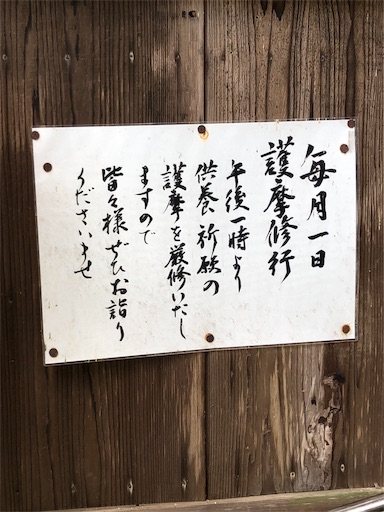 毎月一日
護摩修行
午後一時より
供養祈願の
護摩を厳修いたし
ますので
皆々様ぜひお詣り
くださいませ